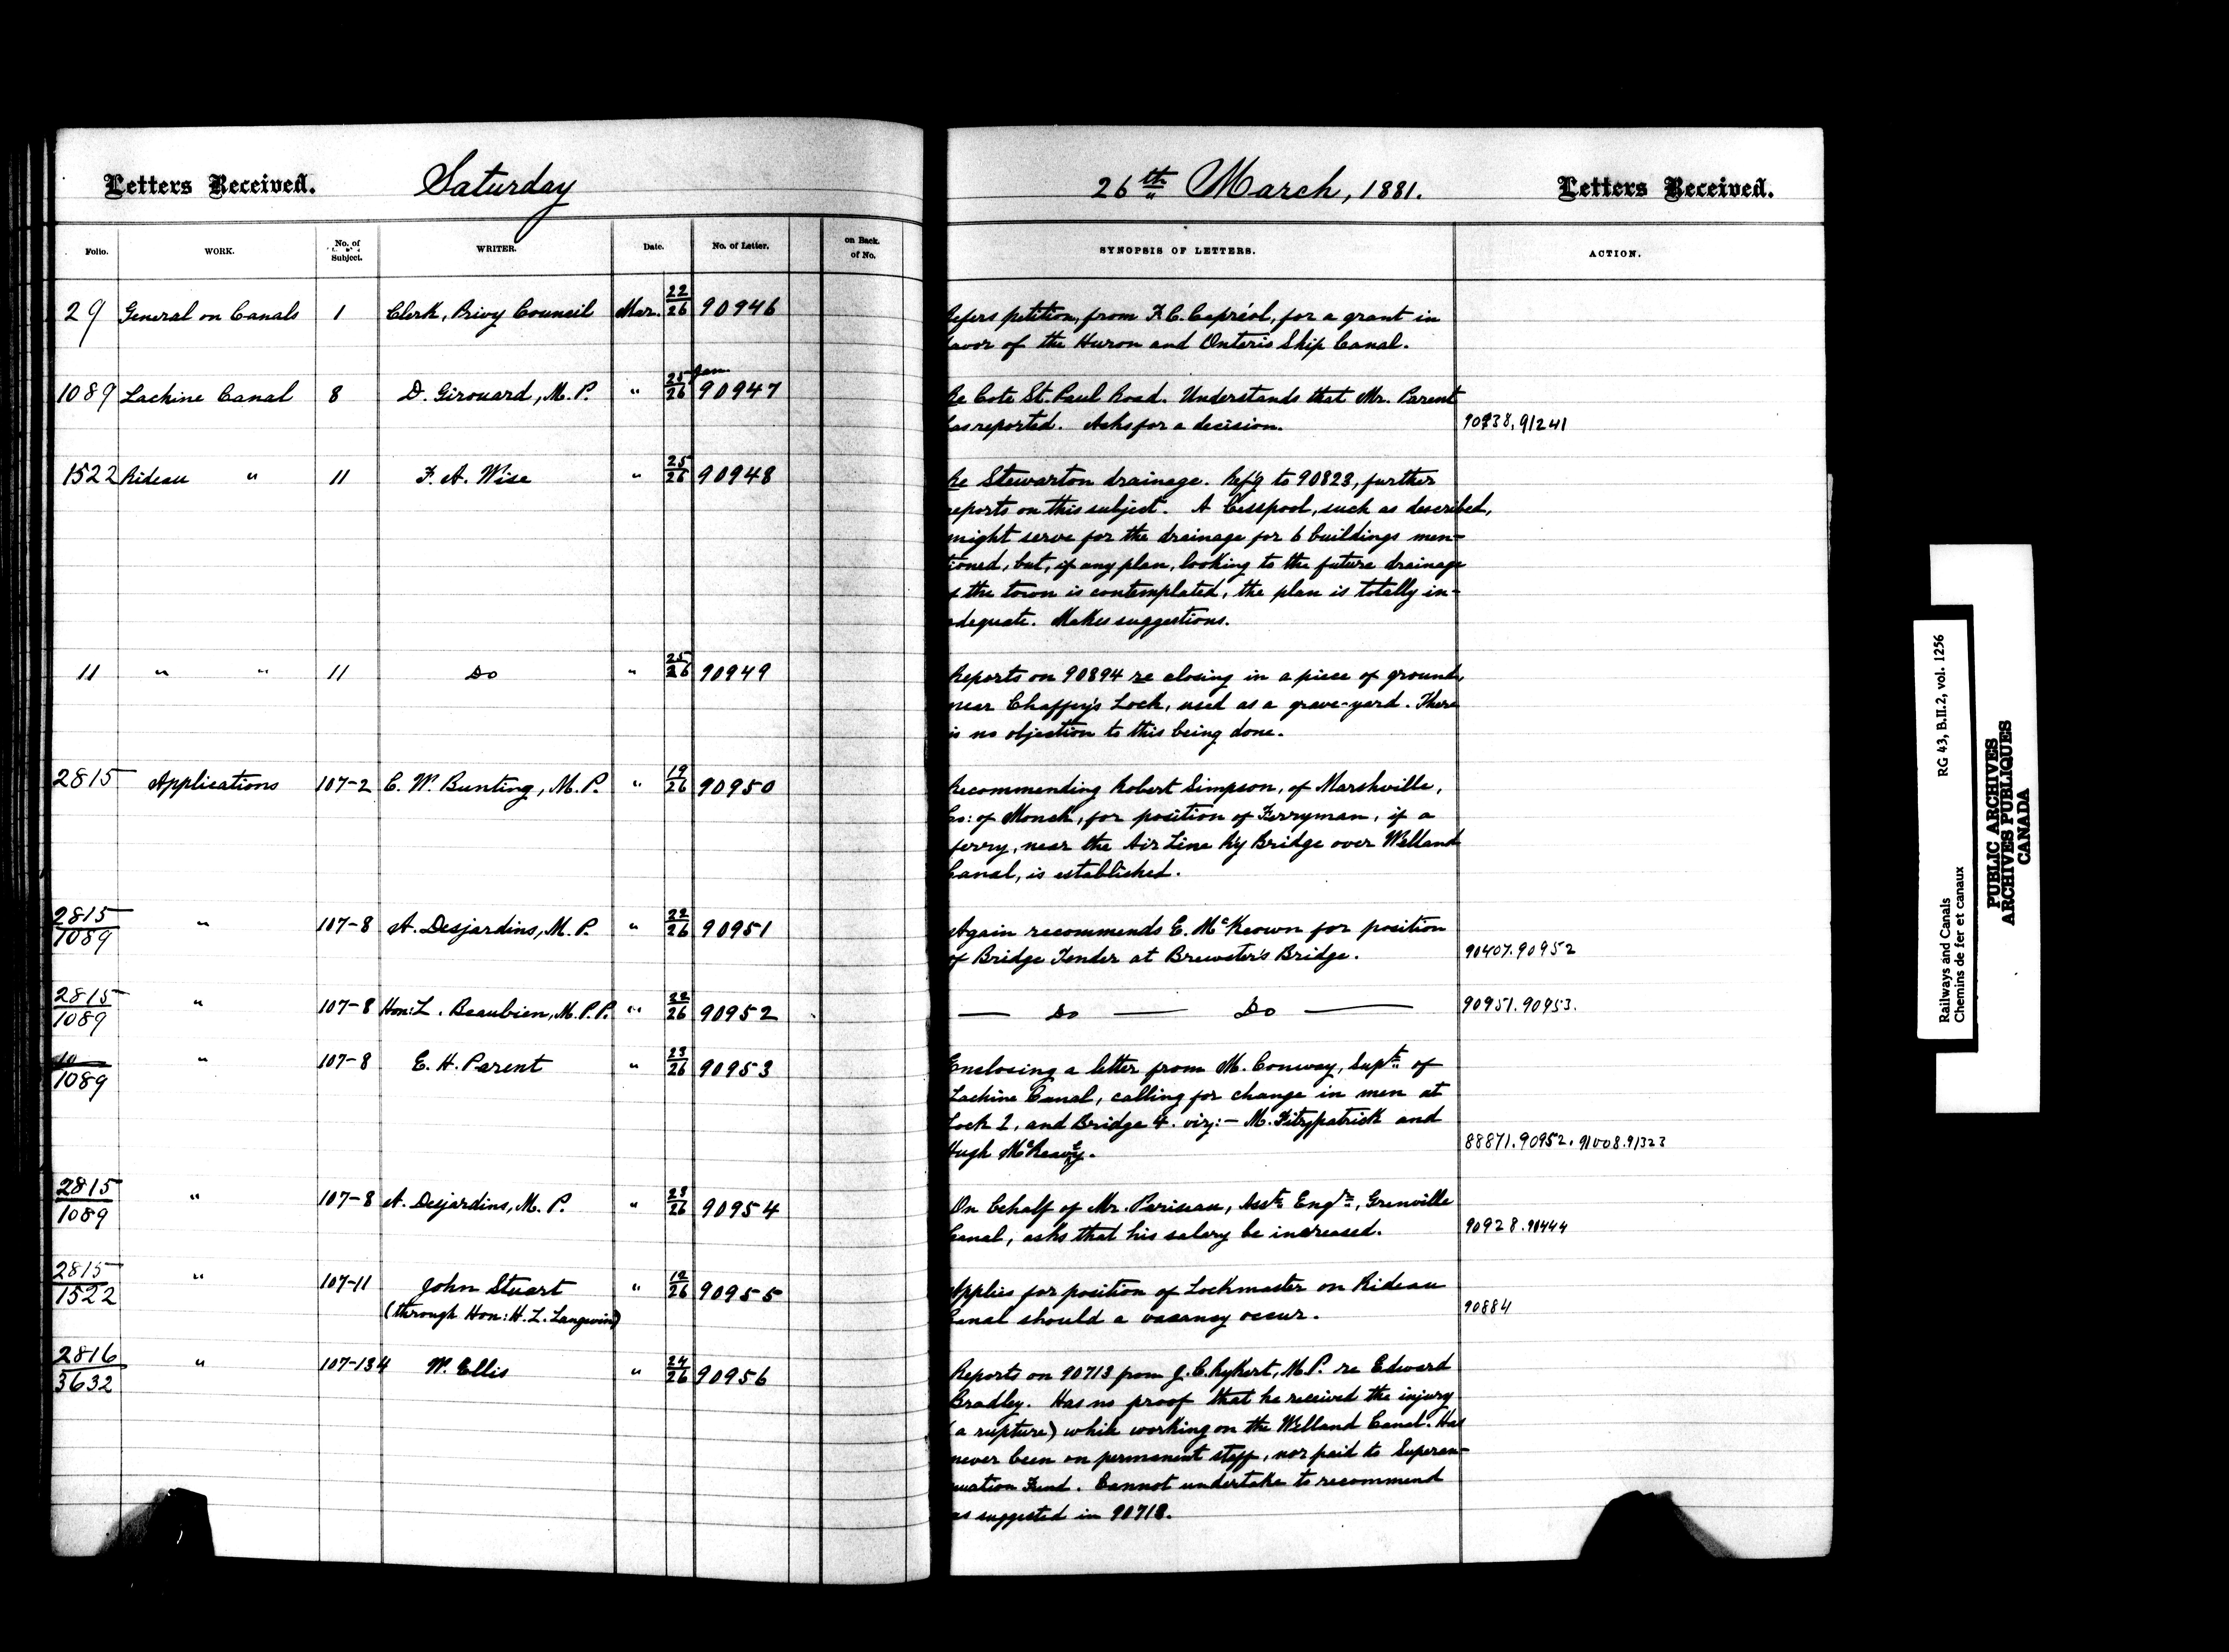 Letters Received. Saturday
26th March, 1881. Letters Received.
Folio. WORK. No. of Subject. WRITER. Date. No. of Letter. on Back of No.
SYNOPSIS OF LETTERS. ACTION.
29 General on Canals 1 Clerk, Privy Council Mar. 22/26 90946
Refers petition, from F. C. Capréol, for a grant in
favor of the Huron and Onterio Ship Canal.
1089 Lachine Canal 8 D. Girouard, M.P. " 25/26 Jan 90947
Re Cote St. Paul Road. Understands that Mr. Parent
has reported. Asks for a decision. 90938, 91241
1522 Rideau " 11 F. A. Wise " 25/26 90948
Re Stewarton drainage. Ref'g to 90823, further
reports on this subject. A Cesspool, such as described,
might serve for the drainage for 6 buildings men-
tioned, but, if any plan, looking to the future drainage
of the town is contemplated, the plan is totally in-
adequate. Makes suggestions.
11 " " 11 Do " 25/26 90949
Reports on 90894 re closing in a piece of ground,
near Chaffey's Lock, used as a grave-yard. There
is no objection to this being done.
2815 Applications 107-2 C. W. Bunting, M.P. " 19/26 90950
Recommending Robert Simpson, of Marshville,
Co: of Monck, for position of Ferryman, if a
ferry, near the Air Line R'y Bridge over Welland
Canal, is established.
2815/1089 " 107-8 A. Desjardins, M.P. " 22/26 90951
Again recommends E. McKeown for position
of Bridge Tender at Brewster's Bridge. 90407. 90952
2815/1089 " 107-8 Hon: L. Beaubien, M.P.P. " 22/26 90952
— Do — Do — 90951. 90953.
1089 " 107-8 E. H. Parent " 23/26 90953
Enclosing a letter from M. Conway, Supt. of
Lachine Canal, calling for change in men at
Lock 2, and Bridge 4. viz:- M. Fitzpatrick and
Hugh McReavy. 88871. 90952. 91008. 91323
2815/1089 " 107-8 A. Desjardins, M.P. " 23/26 90954
On behalf of Mr. Pariseau, Asst. Engr., Grenville
Canal, asks that his salary be increased. 90928. 90444
2815/1522 " 107-11 John Stuart " 12/26 90955
(through Hon: H. L. Langevin)
Applies for position of Lockmaster on Rideau
Canal should a vacancy occur. 90884
2816/3632 " 107-134 W. Ellis " 24/26 90956
Reports on 90713 from J. C. Rykert, M.P. re Edward
Bradley. Has no proof that he received the injury
(a rupture) while working on the Welland Canal. Has
never been on permanent staff, nor paid to Superan-
nuation Fund. Cannot undertake to recommend
as suggested in 90713.
Railways and Canals RG 43, B.II.2, vol. 1256
Chemins de fer et canaux
PUBLIC ARCHIVES
ARCHIVES PUBLIQUES
CANADA